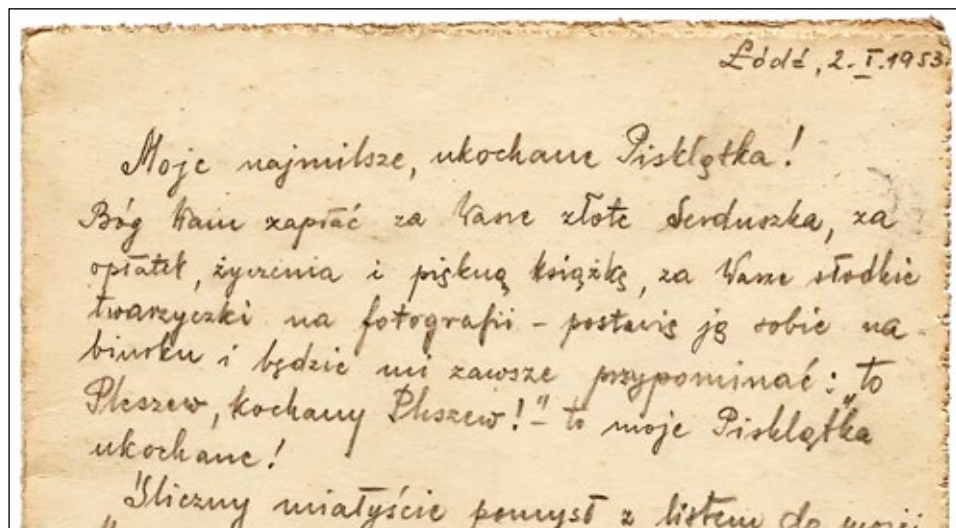 Łódź, 2.I.1953.
Moje najmilsze, ukochane Pisklątka!
Bóg Wam zapłać za Wasze złote Serduszka, za
opłatek, życzenia i piękną książkę, za Wasze słodkie
twarzyczki na fotografii – postawię ją sobie na
biurku i będzie mi zawsze przypominać: „to
Pleszew, kochany Pleszew!" – to moje Pisklątka
ukochane!
Śliczny miałyście pomysł z listem do